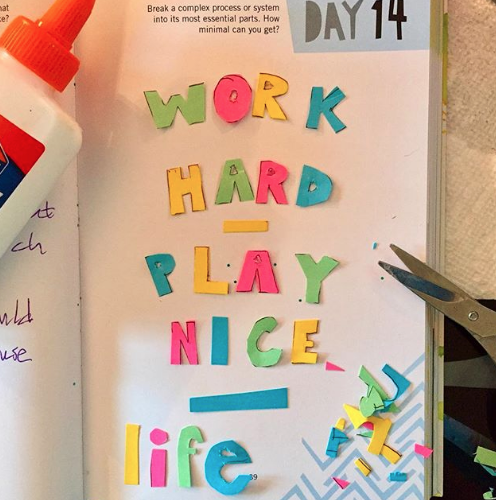 Break a complex process or system
into its most essential parts. How
minimal can you get?
DAY 14
WORK
HARD
PLAY
NICE
life